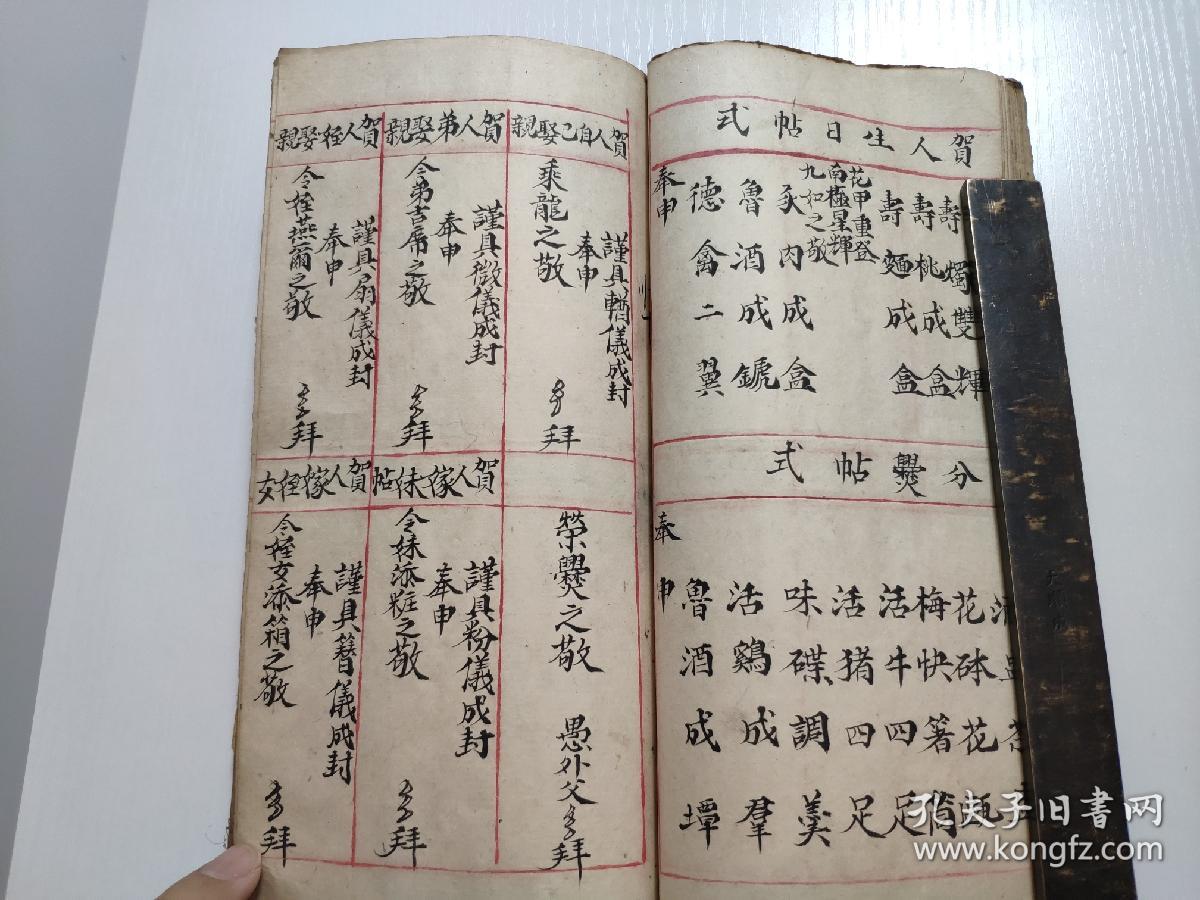 賀人生日帖式
壽燭雙輝
壽桃成盒
壽麵成盒
花甲重登
南極星輝
九如之敬
炙肉成盒
魯酒成鏣
德禽二翼
奉申
分爨帖式
花砵花瓶
梅快箸筒
活牛四足
活猪四足
味碟調羹
活鷄成羣
魯酒成墰
奉申
賀人自己娶親
謹具輶儀成封
奉申
乘龍之敬
拜
賀人弟娶親
謹具微儀成封
奉申
令弟吉席之敬
拜
賀人侄娶親
謹具扇儀成封
奉申
令侄燕爾之敬
拜
榮爨之敬
愚外父拜
賀人嫁妹帖
謹具粉儀成封
奉申
令妹添粧之敬
拜
賀人嫁侄女
謹具簪儀成封
奉申
令侄女添箱之敬
拜
孔夫子旧书网
www.kongfz.com